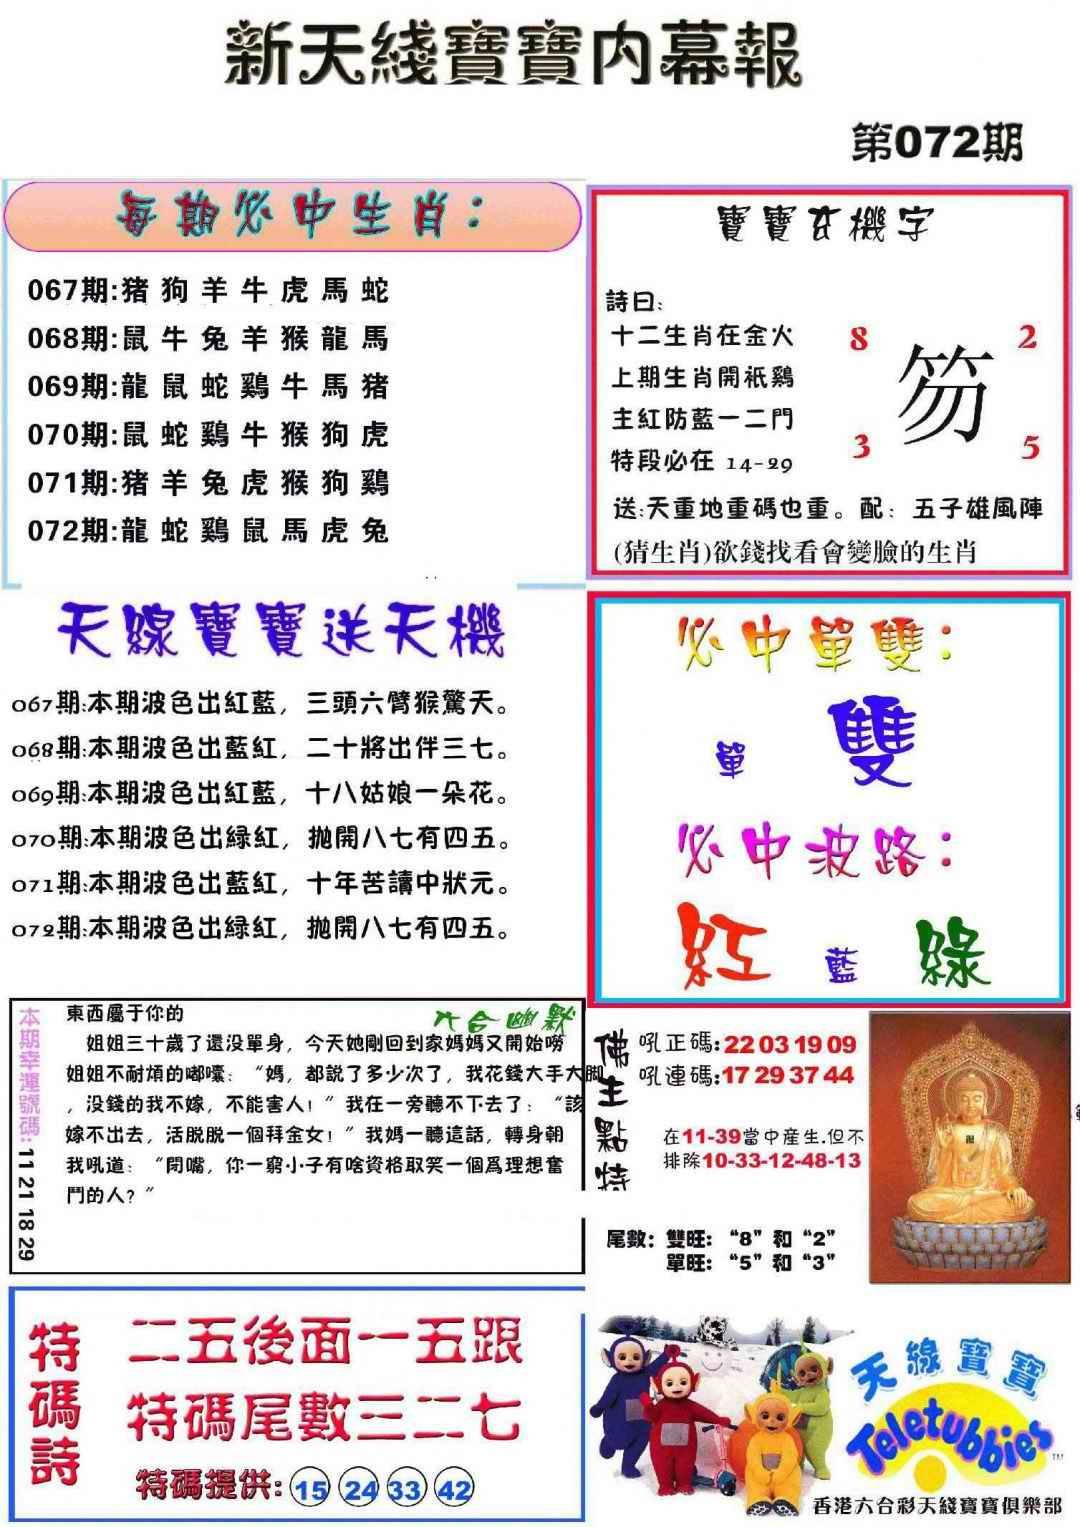 新天綫寶寶内幕報
第072期
每期必中生肖：
067期:猪狗羊牛虎馬蛇
068期:鼠牛兔羊猴龍馬
069期:龍鼠蛇鷄牛馬猪
070期:鼠蛇鷄牛猴狗虎
071期:猪羊兔虎猴狗鷄
072期:龍蛇鷄鼠馬虎兔
寶寶玄機字
詩曰:
十二生肖在金火
上期生肖開祇鷄
主紅防藍一二門
特段必在 14-29
8 2
笏
3 5
送:天重地重碼也重。配：五子雄風陣
(猜生肖)欲錢找看會變臉的生肖
天線寶寶送天機
067期:本期波色出紅藍，三頭六臂猴驚天。
068期:本期波色出藍紅，二十將出伴三七。
069期:本期波色出紅藍，十八姑娘一朵花。
070期:本期波色出緑紅，抛開八七有四五。
071期:本期波色出藍紅，十年苦讀中狀元。
072期:本期波色出緑紅，抛開八七有四五。
必中單雙：
單 雙
必中波路：
紅 藍 綠
本期幸運號碼: 11 21 18 29
六合幽默
東西屬于你的
姐姐三十歲了還没單身，今天她剛回到家媽媽又開始嘮
姐姐不耐煩的嘟囔：“媽，都説了多少次了，我花錢大手大脚
，没錢的我不嫁，不能害人！”我在一旁聽不下去了：“該
嫁不出去，活脱脱一個拜金女！”我媽一聽這話，轉身朝
我吼道：“閉嘴，你一窮小子有啥資格取笑一個爲理想奮
鬥的人？”
佛主點特
吼正碼:22 03 19 09
吼連碼:17 29 37 44
在11-39當中産生.但不
排除10-33-12-48-13
尾數：雙旺：“8”和“2”
單旺：“5”和“3”
特碼詩
二五後面一五跟
特碼尾數三二七
特碼提供: 15 24 33 42
天線寶寶
Teletubbies™
香港六合彩天綫寶寶俱樂部